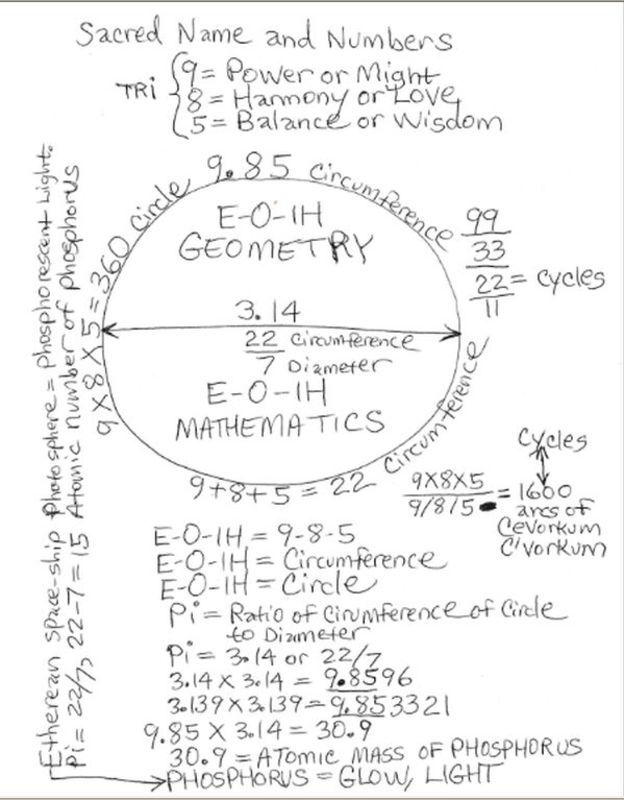 Sacred Name and Numbers
TRi { 9 = Power or Might
8 = Harmony or Love
5 = Balance or Wisdom
9.85 Circumference
9 x 8 x 5 = 360 Circle
E-O-IH
GEOMETRY
99
33
22 = Cycles
11
3.14
22 Circumference
7 Diameter
E-O-IH
MATHEMATICS
Circumference
9+8+5 = 22
Cycles
9X8X5
9/8/5 = 1600
arcs of
Cevorkum
C'vorkum
E-O-IH = 9-8-5
E-O-IH = Circumference
E-O-IH = Circle
Pi = Ratio of Cirumference of Circle
to Diameter
Pi = 3.14 or 22/7
3.14 X 3.14 = 9.8596
3.139 X 3.139 = 9.853321
9.85 X 3.14 = 30.9
30.9 = ATOMIC MASS OF PHOSPHORUS
PHOSPHORUS = GLOW, LIGHT
Etherean space-ship Photosphere = Phosphorescent Light.
Pi = 22/7, 22-7 = 15 Atomic number of phosphorus